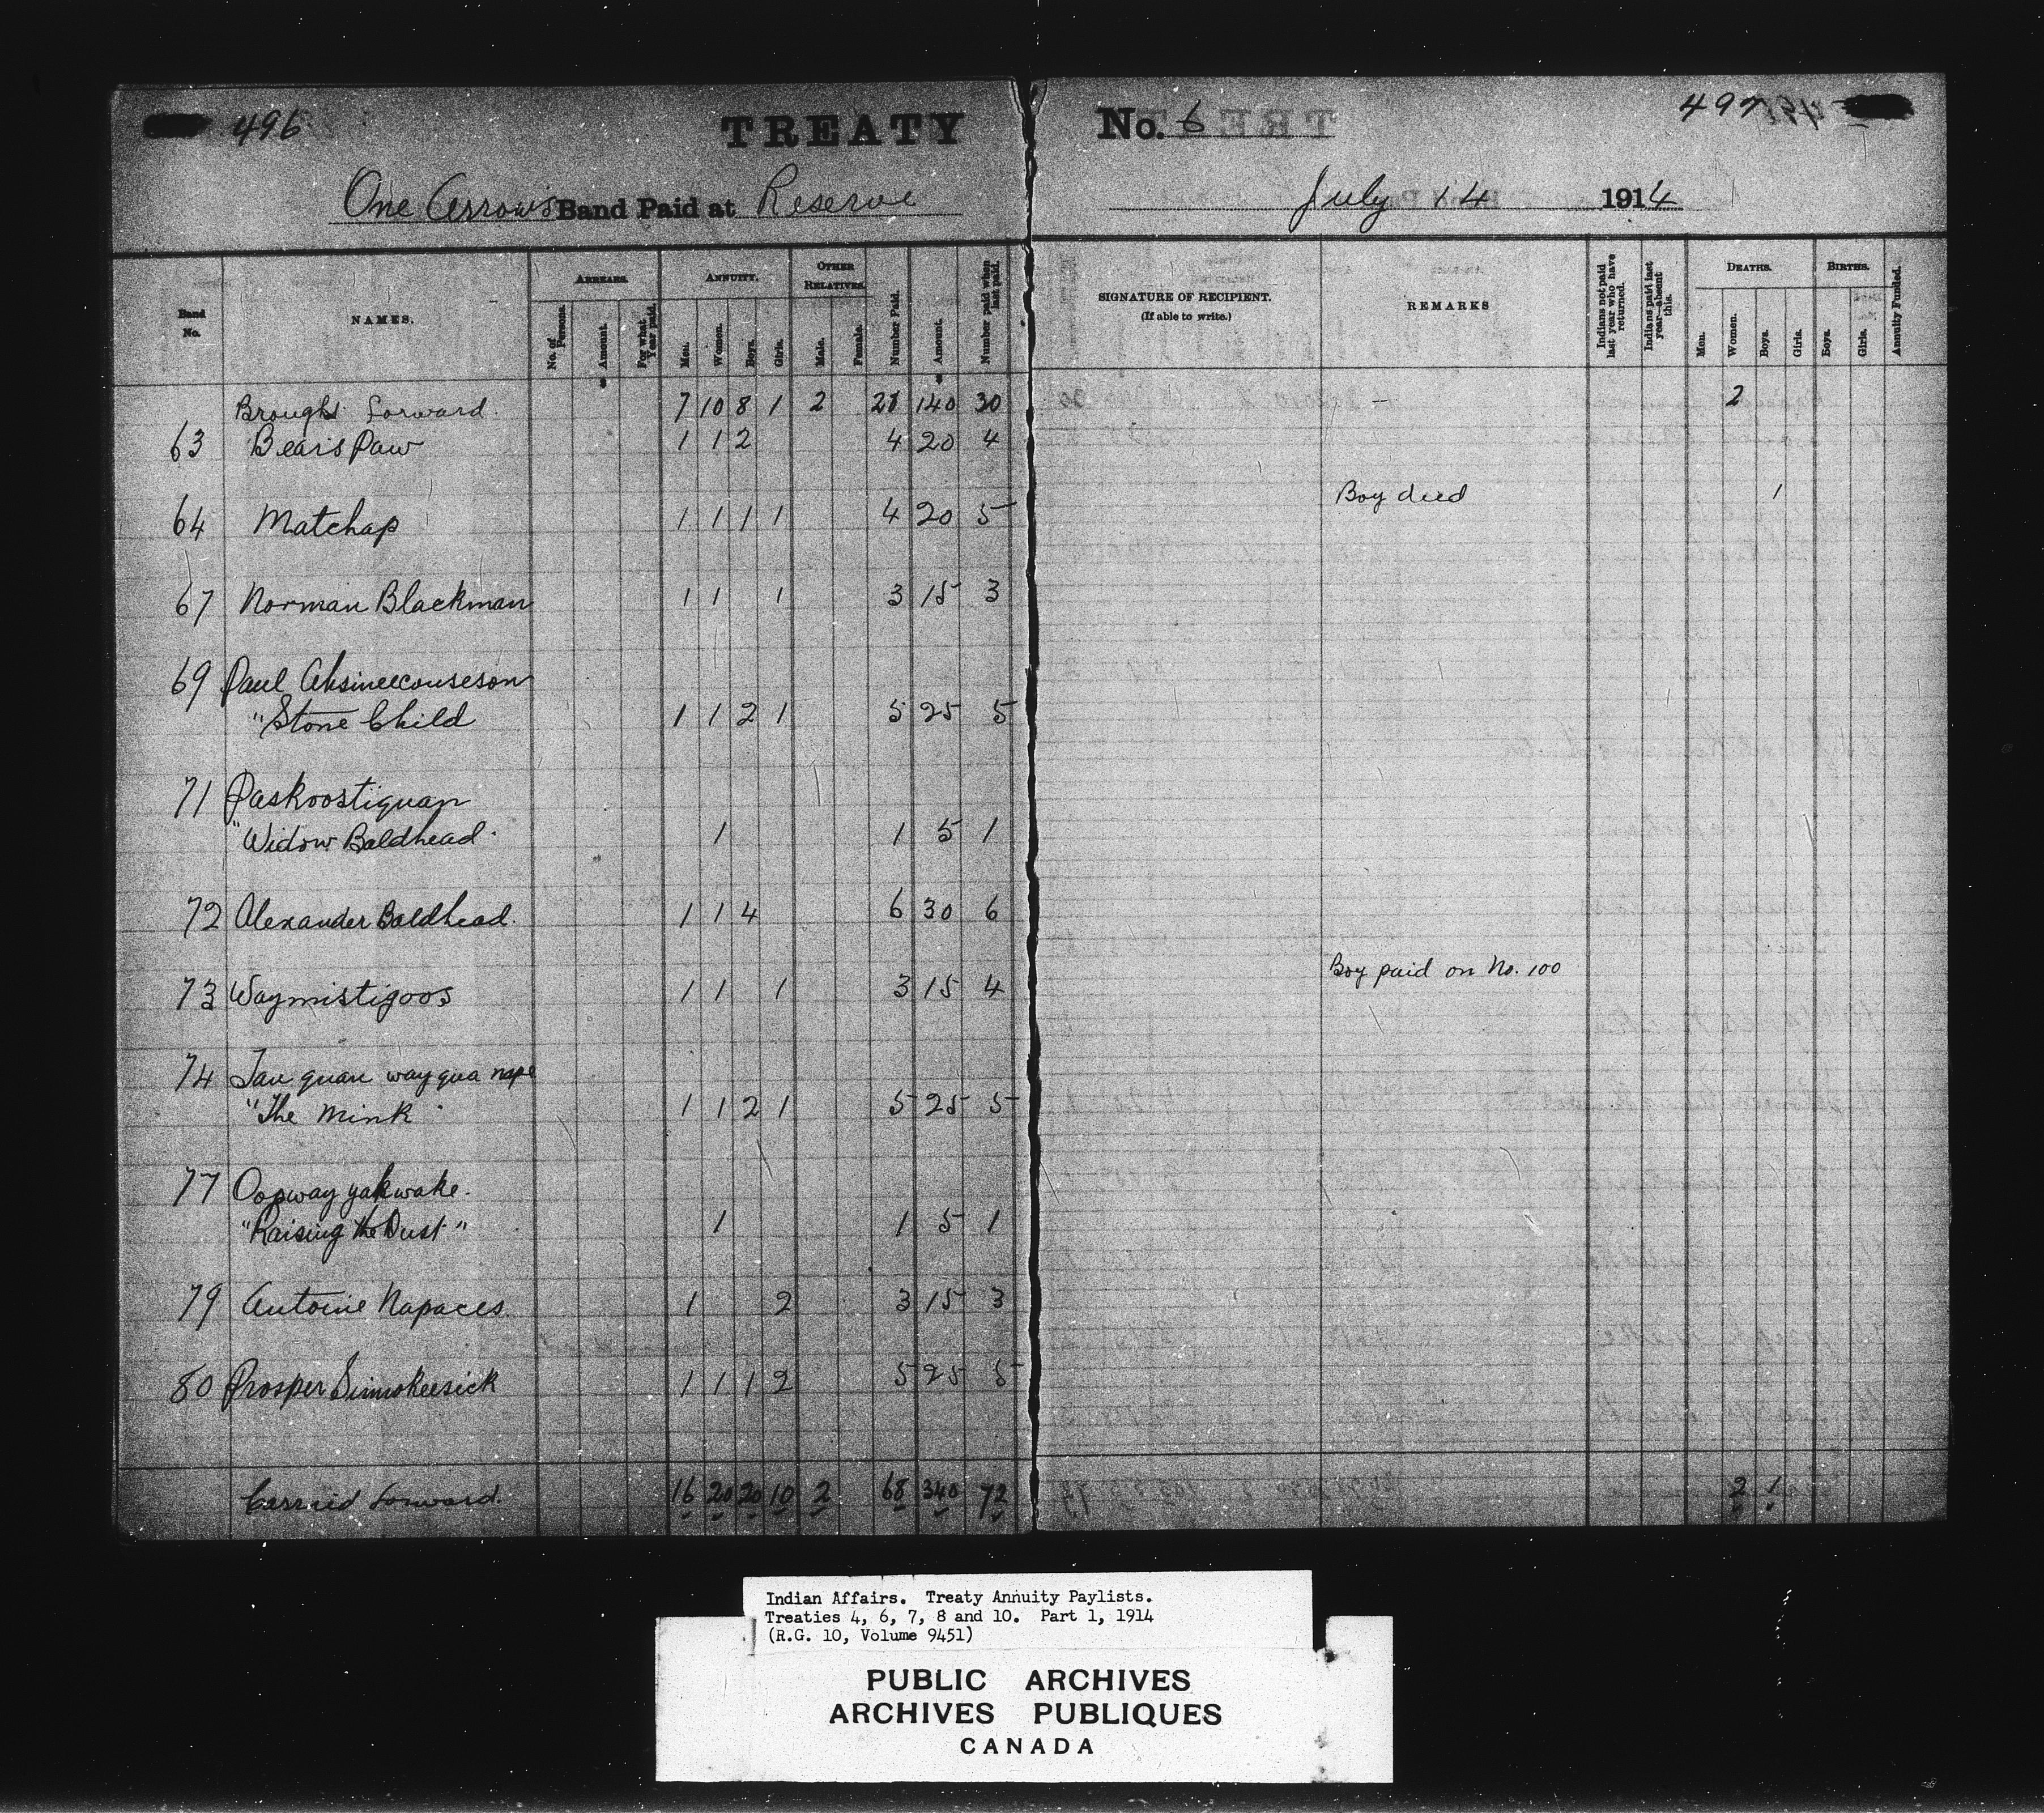 496
TREATY No. 6
497
One Arrows Band Paid at Reserve
July 14 1914
Band No.
NAMES.
ARREARS.
No. of Persons.
Amount.
For what Year paid.
ANNUITY.
Men.
Women.
Boys.
Girls.
OTHER RELATIVES.
Male.
Female.
Number Paid.
Amount.
Number paid when last paid.
SIGNATURE OF RECIPIENT.
(If able to write.)
REMARKS
Indians not paid last year who have returned.
Indians paid last year—absent this.
DEATHS.
Men.
Women.
Boys.
Girls.
BIRTHS.
Boys.
Girls.
Annuity Funded.
Brought forward. 7 10 8 1 2 28 140 30 2
63 Bears Paw 1 1 2 4 20 4
Boy died 1
64 Matchap 1 1 1 1 4 20 5
67 Norman Blackman 1 1 1 3 15 3
69 Paul Ahsineecouseson
"Stone Child 1 1 2 1 5 25 5
71 Paskoostiquan
"Widow Baldhead. 1 1 5 1
72 Alexander Baldhead. 1 1 4 6 30 6
Boy paid on No. 100
73 Waymistigoos 1 1 1 3 15 4
74 Tau quau wayqua nape
"The Mink 1 1 2 1 5 25 5
77 Oopway yakwake.
"Raising the Dust" 1 1 5 1
79 Antoine Napaces. 1 2 3 15 3
80 Prosper Simmokeesick 1 1 1 2 5 25 5
Carried forward. 16 20 20 10 2 68 340 72 2 1
Indian Affairs. Treaty Annuity Paylists.
Treaties 4, 6, 7, 8 and 10. Part 1, 1914
(R.G. 10, Volume 9451)
PUBLIC ARCHIVES
ARCHIVES PUBLIQUES
CANADA